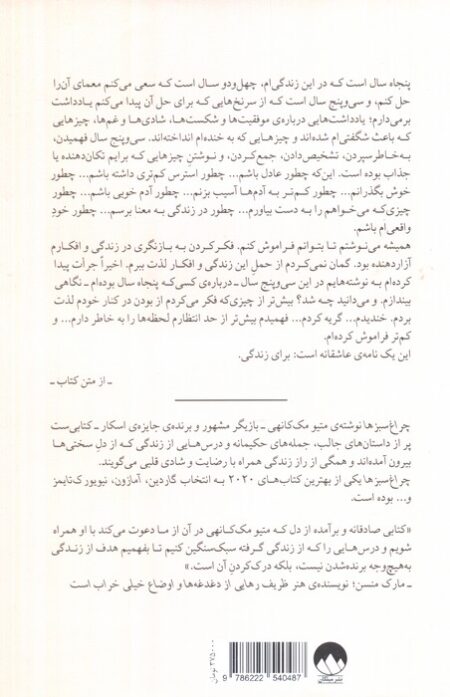 پنجاه سال است که در این زندگی‌ام، چهل‌ودو سال است که سعی می‌کنم معمای آن‌را
حل کنم، و سی‌وپنج سال است که از سرنخ‌هایی که برای حل آن پیدا می‌کنم یادداشت
برمی‌دارم؛ یادداشت‌هایی درباره‌ی موفقیت‌ها و شکست‌ها، شادی‌ها و غم‌ها، چیزهایی
که باعث شگفتی‌ام شده‌اند و چیزهایی که به خنده‌ام انداخته‌اند. سی‌وپنج سال فهمیدن،
به‌خاطرسپردن، تشخیص‌دادن، جمع‌کردن، و نوشتنِ چیزهایی که برایم تکان‌دهنده یا
جذاب بوده است. این‌که چطور عادل باشم... چطور استرس کم‌تری داشته باشم... چطور
خوش بگذرانم... چطور کم‌تر به آدم‌ها آسیب بزنم... چطور آدم خوبی باشم... چطور
چیزی‌که می‌خواهم را به دست بیاورم... چطور در زندگی به معنا برسم... چطور خودِ
واقعی‌ام باشم.
همیشه می‌نوشتم تا بتوانم فراموش کنم. فکرکردن به بازنگری در زندگی و افکارم
آزاردهنده بود. گمان نمی‌کردم از حملِ این زندگی و افکار لذت ببرم. اخیراً جرأت پیدا
کرده‌ام به نوشته‌هایم در این سی‌وپنج سال ـ درباره‌ی کسی‌که پنجاه سال بوده‌ام ـ نگاهی
بیندازم. و می‌دانید چه شد؟ بیش‌تر از چیزی‌که فکر می‌کردم از بودن در کنار خودم لذت
بردم. خندیدم... گریه کردم... فهمیدم بیش‌تر از حد انتظارم لحظه‌ها را به خاطر دارم... و
کم‌تر فراموش کرده‌ام.
این یک نامه‌ی عاشقانه است: برای زندگی.
ـ از متن کتاب ـ
چراغ‌سبزها نوشته‌ی متیو مک‌کانهی ـ بازیگر مشهور و برنده‌ی جایزه‌ی اسکار ـ کتابی‌ست
پر از داستان‌های جالب، جمله‌های حکیمانه و درس‌هایی از زندگی که از دلِ سختی‌ها
بیرون آمده‌اند و همگی از راز زندگی همراه با رضایت و شادی قلبی می‌گویند.
چراغ‌سبزها یکی از بهترین کتاب‌های ۲۰۲۰ به انتخاب گاردین، آمازون، نیویورک‌تایمز
و... بوده است.
«کتابی صادقانه و برآمده از دل که متیو مک‌کانهی در آن از ما دعوت می‌کند با او همراه
شویم و درس‌هایی را که از زندگی گرفته سبک‌سنگین کنیم تا بفهمیم هدف از زندگی
به‌هیچ‌وجه برنده‌شدن نیست، بلکه درک‌کردنِ آن است.»
ـ مارک منسن؛ نویسنده‌ی هنر ظریف رهایی از دغدغه‌ها و اوضاع خیلی خراب است
۳۷۵۰۰۰ تومان
9 786222 540487